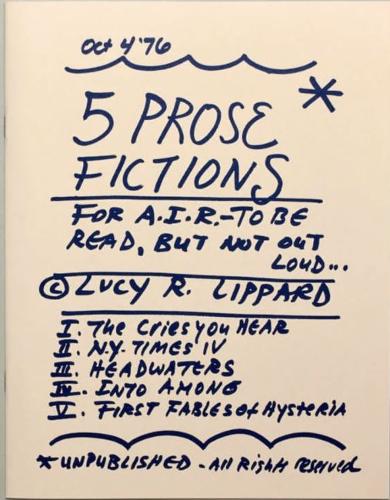 Oct 4 '76
*
5 PROSE
FICTIONS
FOR A.I.R.-TO BE
READ, BUT NOT OUT
LOUD...
© LUCY R. LIPPARD
I. The Cries you HEAR
II. N.Y. TIMES IV
III. HEADWATERS
IV. INTO AMONG
V. FIRST FABLES of HysteriA
* UNPUBLISHED - All Rights reserved